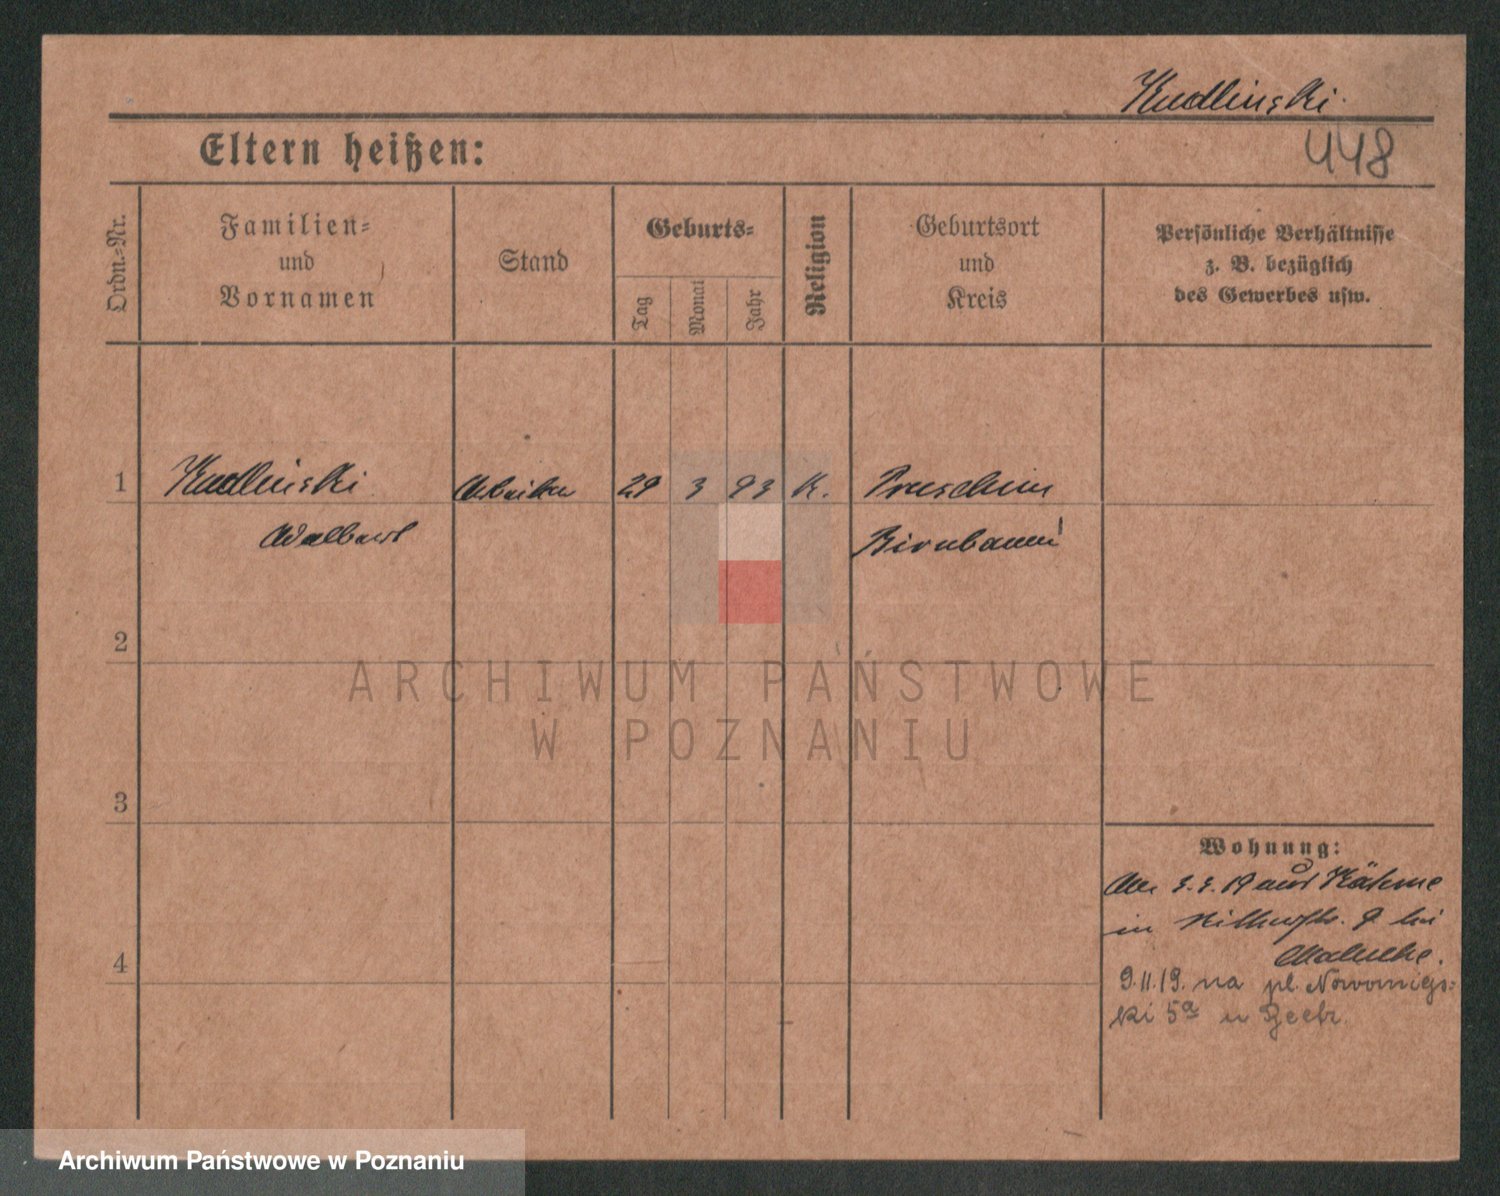 Kudlinski.
448
Eltern heißen:
Ordn.=Nr.
Familien=
und
Vornamen
Stand
Geburts=
Tag
Monat
Jahr
Religion
Geburtsort
und
Kreis
Persönliche Verhältnisse
z. B. bezüglich
des Gewerbes usw.
1 Kudlinski Arbeiter 29 3 93 K. Pruschim
Adalbert Birnbaum
2
ARCHIWUM PAŃSTWOWE
W POZNANIU
3
Wohnung:
Am 3.3.19 aus Kähme
in 9 bei
4
9.11.19. na pl. Nowomiejs=
ki 5a u
Archiwum Państwowe w Poznaniu